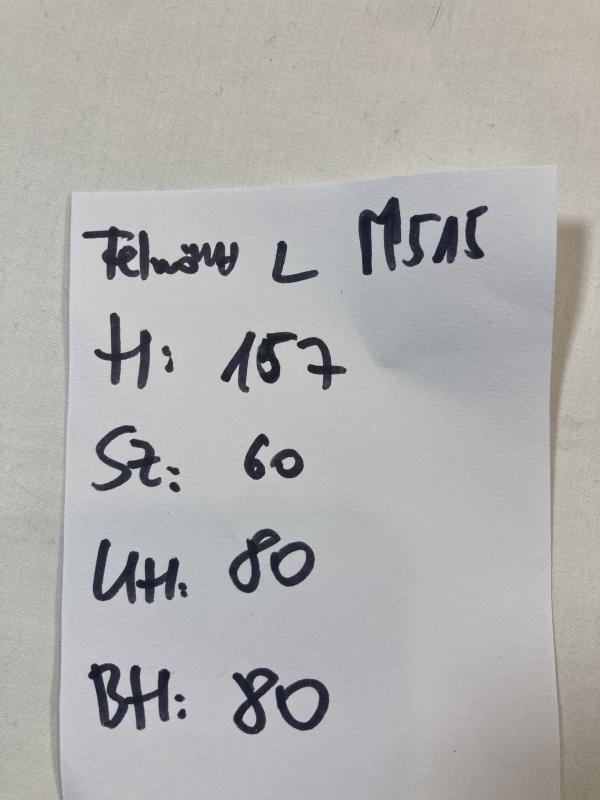 L M515
H: 157
Sz: 60
UH: 80
BH: 80